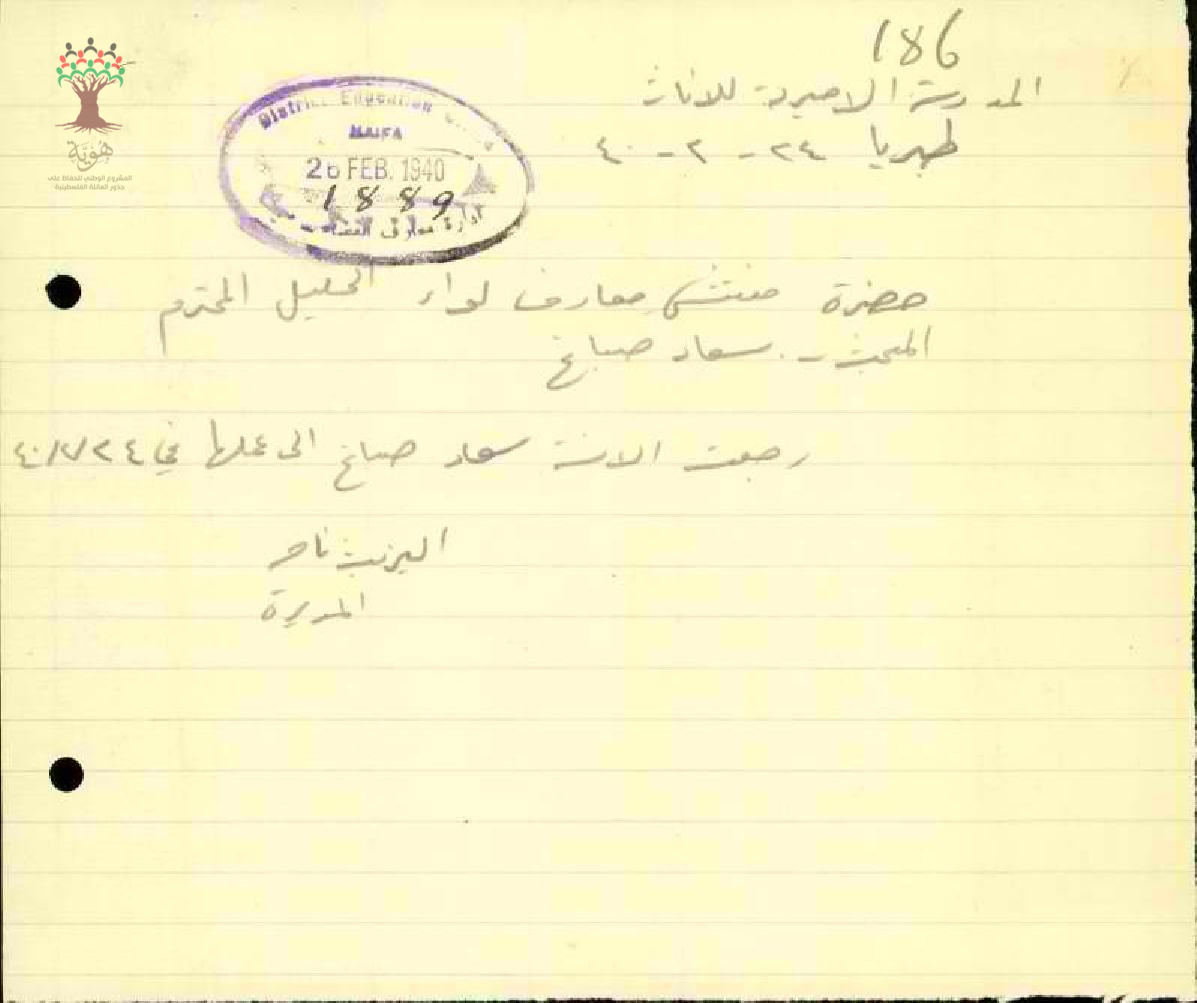 186
المدرسة الاميرية للاناث
طبريا ٢٤ - ٢ - ٤٠
هُوِيَّة
المشروع الوطني للحفاظ على
جذور العائلة الفلسطينية
District Education
HAIFA
26 FEB. 1940
1889
ادارة معارف
حضرة مفتش معارف لواء الجليل المحترم
المبحث - سعاد صباغ
رجعت الانسة سعاد صباغ الى عملها في ٤٠/٢/٢٤
المديرة